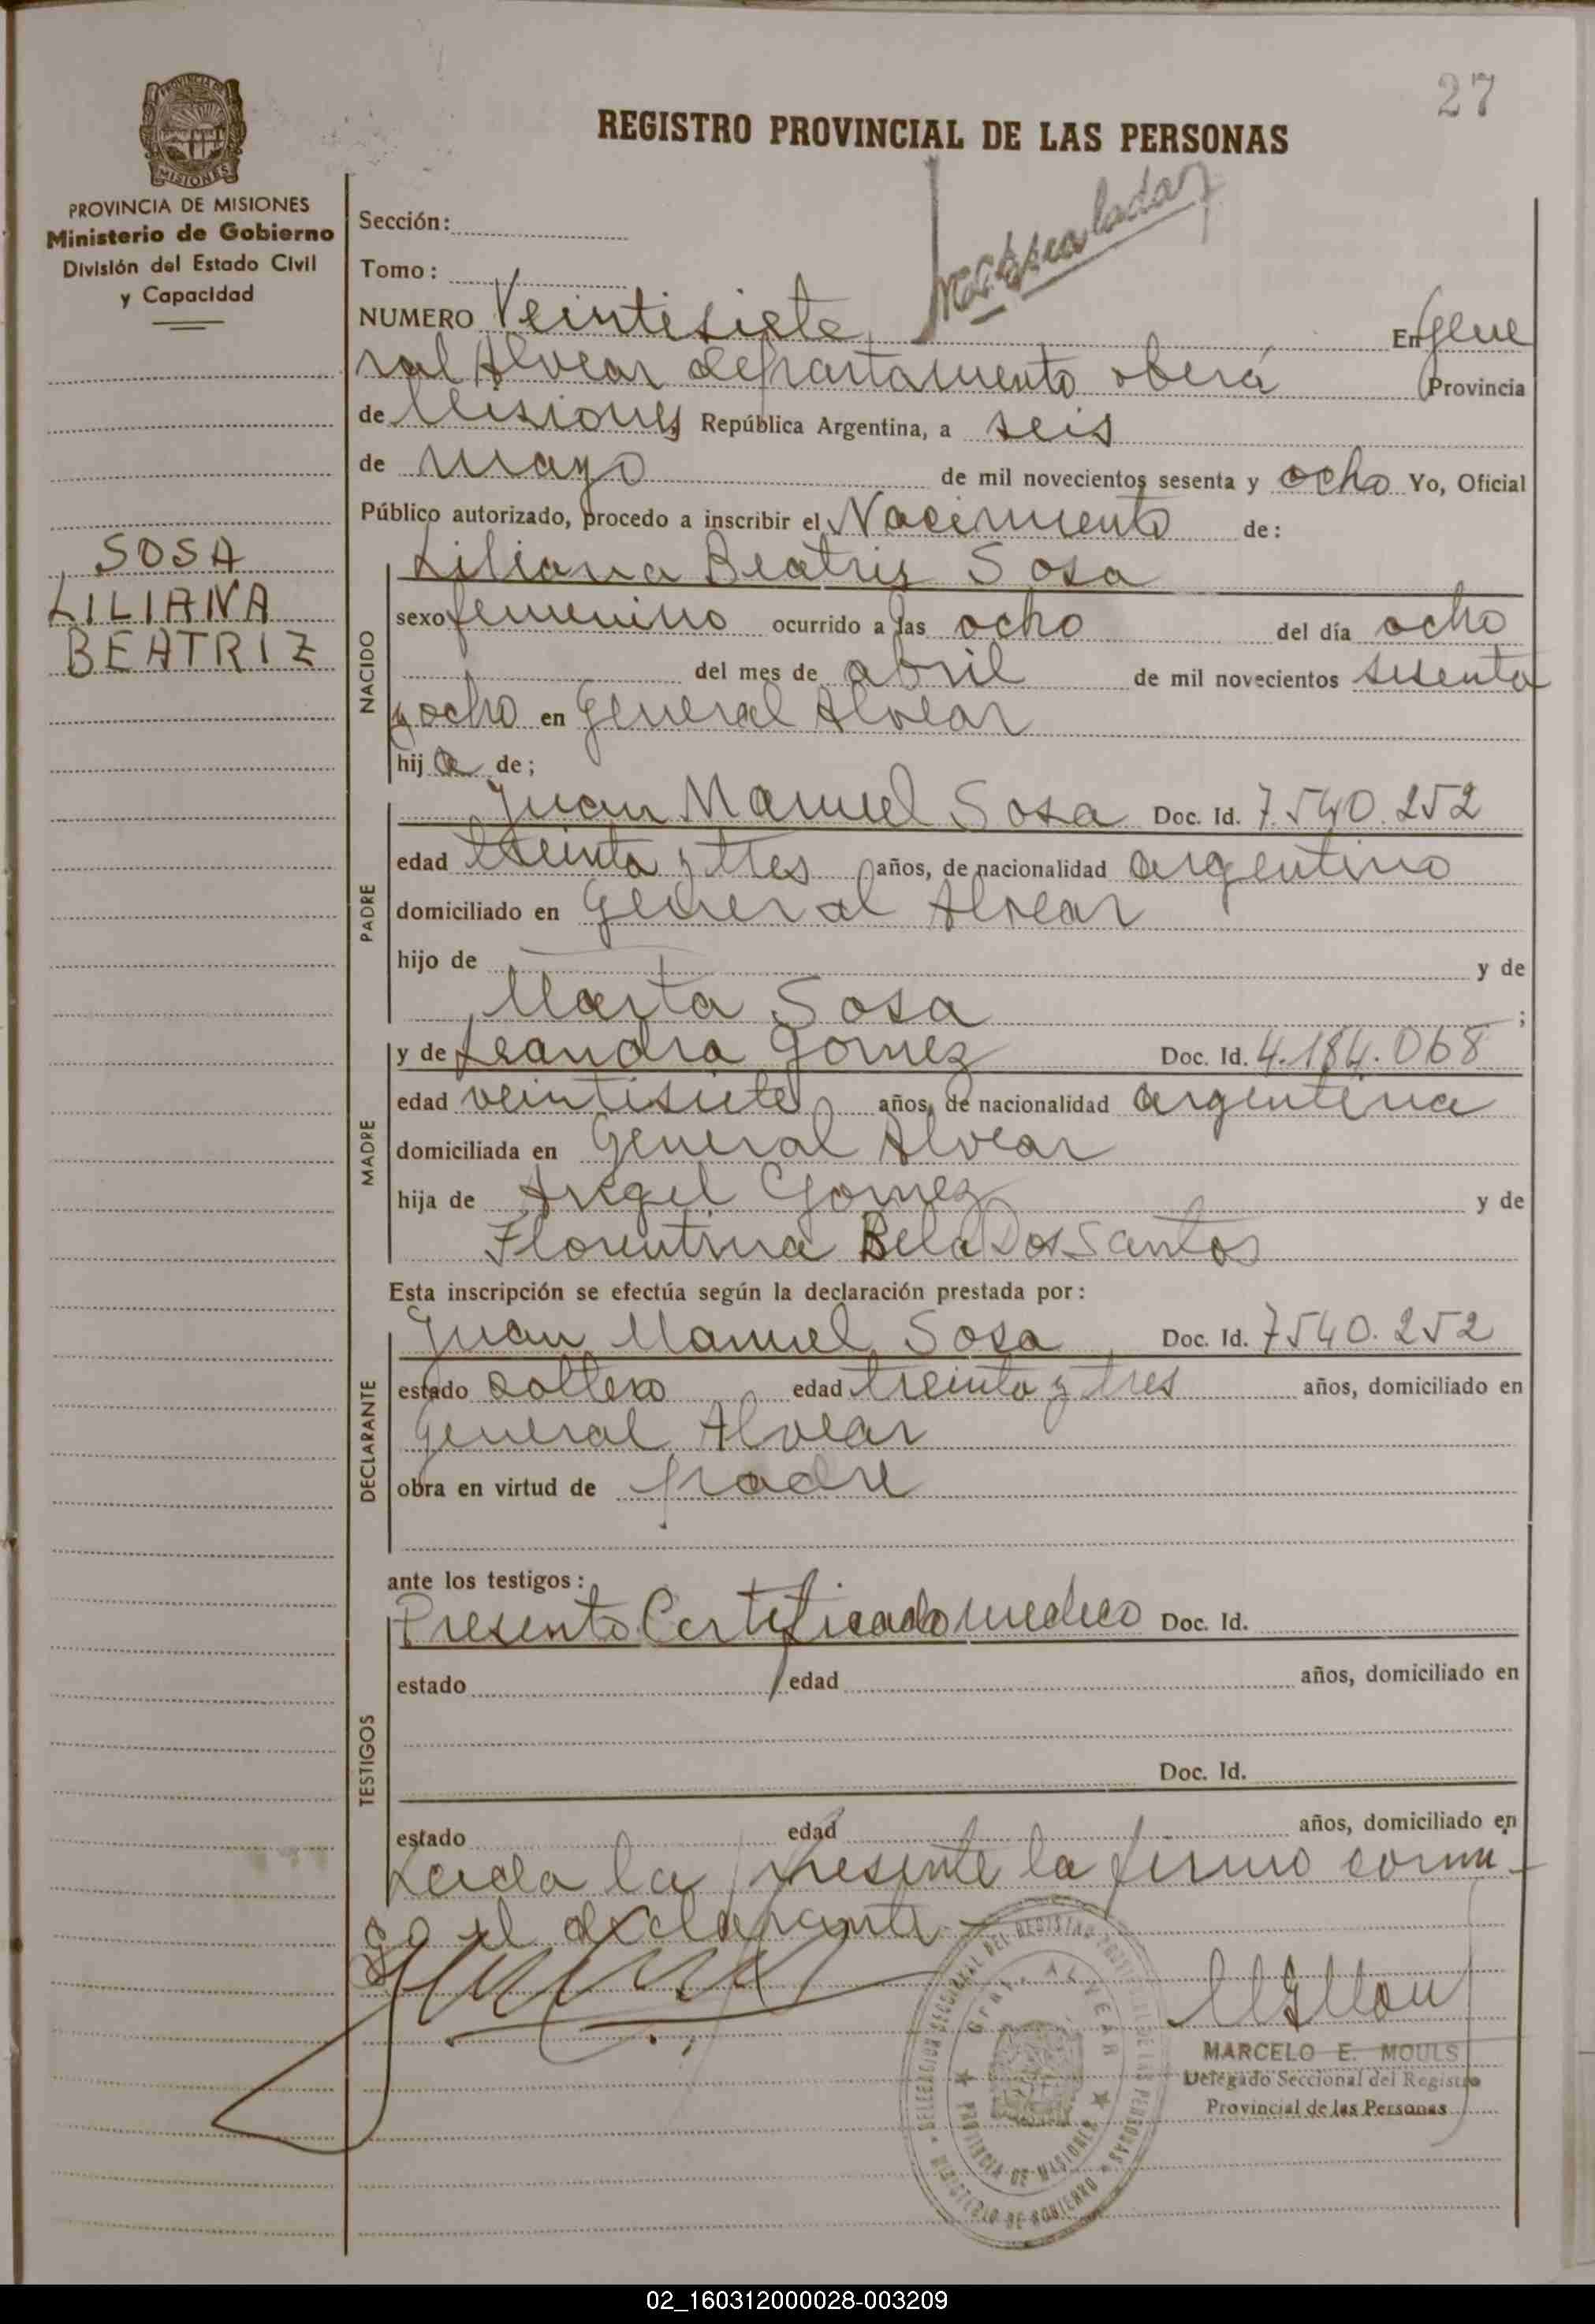 27
REGISTRO PROVINCIAL DE LAS PERSONAS
PROVINCIA DE MISIONES
Ministerio de Gobierno
División del Estado Civil
y Capacidad
Sección:
Tomo:
NUMERO Veintisiete En Gene
ral Alvear departamento oberá Provincia
de Misiones República Argentina, a seis
de mayo de mil novecientos sesenta y ocho Yo, Oficial
Público autorizado, procedo a inscribir el Nacimiento de:
SOSA
LILIANA
BEATRIZ
NACIDO
Liliana Beatris Sosa
sexo femenino ocurrido a las ocho del día ocho
del mes de abril de mil novecientos sesenta
y ocho en General Alvear
hij a de;
PADRE
Juan Manuel Sosa Doc. Id. 7.540.252
edad treinta y tres años, de nacionalidad argentino
domiciliado en General Alvear
hijo de y de
Marta Sosa ;
MADRE
y de Leandra Gomez Doc. Id. 4.184.068
edad veintisiete años, de nacionalidad argentina
domiciliada en General Alvear
hija de Angel Gomez y de
Florentina Bela Dos Santos
Esta inscripción se efectúa según la declaración prestada por:
DECLARANTE
Juan Manuel Sosa Doc. Id. 7540.252
estado soltero edad treinta y tres años, domiciliado en
General Alvear
obra en virtud de padre
ante los testigos:
TESTIGOS
Presento Certificado medico Doc. Id.
estado edad años, domiciliado en
Doc. Id.
estado edad años, domiciliado en
Leida la presente la firmo conmi-
go el declarante.
DELEGACION SECCIONAL DEL REGISTRO PROVINCIAL DE LAS PERSONAS
MINISTERIO DE GOBIERNO
Gral. ALVEAR
PROVINCIA DE MISIONES
MARCELO E. MOULS
Delegado Seccional del Registro
Provincial de las Personas
02_160312000028-003209